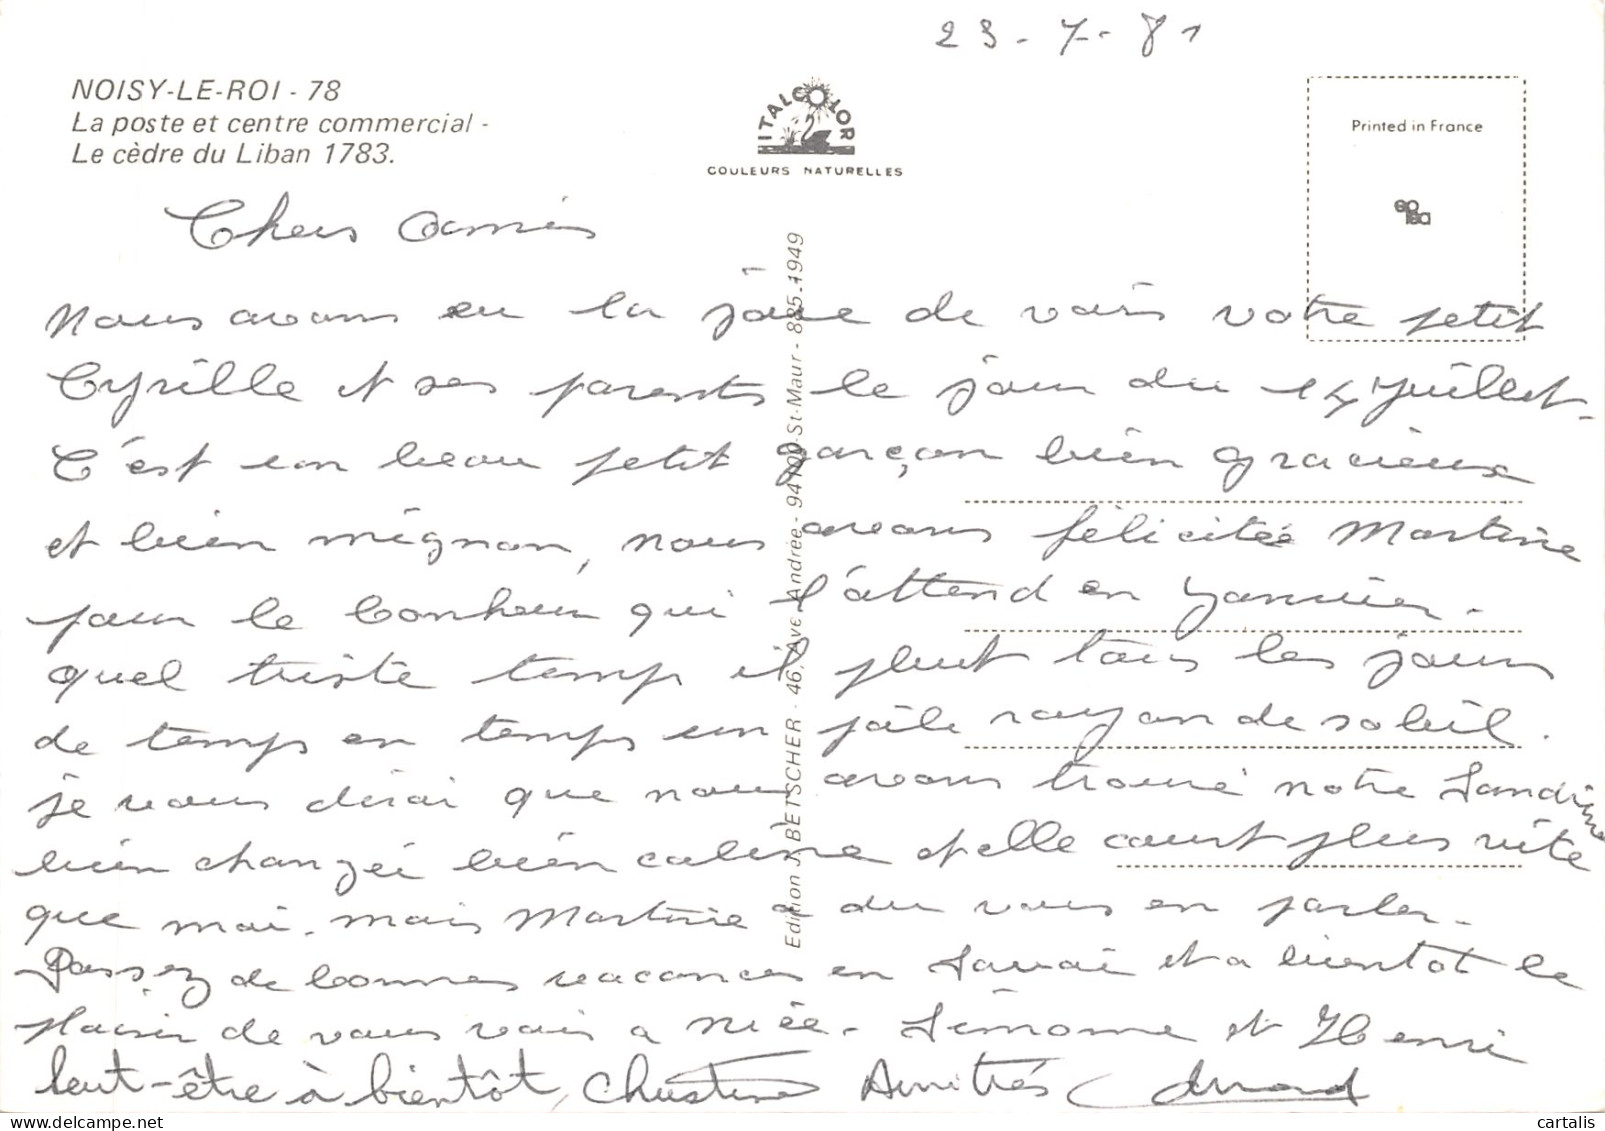 23-7-81
NOISY-LE-ROI - 78
La poste et centre commercial -
Le cèdre du Liban 1783.
ITALCOLOR
COULEURS NATURELLES
Printed in France
Edition J. BETSCHER - 46, Ave. Andrée - 94100 St-Maur - 885-1949
Chers amis
nous avons eu la joie de voir votre petit
Cyrille et ses parents le jour du 14 Juillet.
C'est un beau petit garçon bien gracieux
et bien mignon, nous avons félicitée Martine
pour le bonheur qui l'attend en Janvier.
quel triste temps il pleut tous les jours
de temps en temps un pâle rayon de soleil.
je vous dirai que nous avons trouvé notre Sandrine
bien changée bien caline et elle court plus vite
que moi. mais Martine a du vous en parler.
Passez de bonnes vacances en Savoie et a bientot le
plaisir de vous voir a Nice. Simonne et Henri
Peut-être à bientôt, Christine Amitiés
cartalis